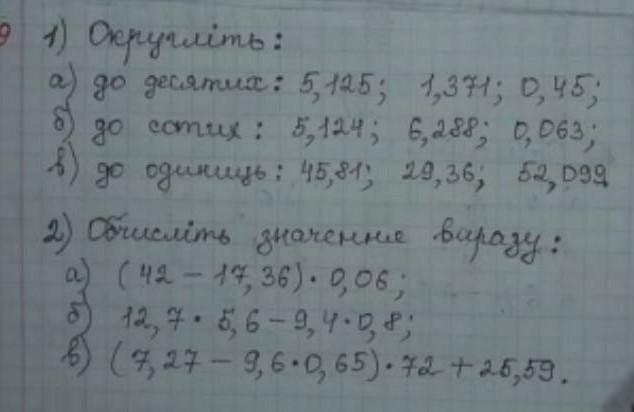 9 1) Округліть:
а) до десятих: 5,125; 1,371; 0,45;
б) до сотих: 5,124; 6,288; 0,063;
в) до одиниць: 45,81; 29,36; 52,099
2) Обчисліть значення виразу:
а) (42 - 17,36) · 0,06;
б) 12,7 · 5,6 - 9,4 · 0,8;
в) (7,27 - 9,6 · 0,65) · 72 + 25,59.